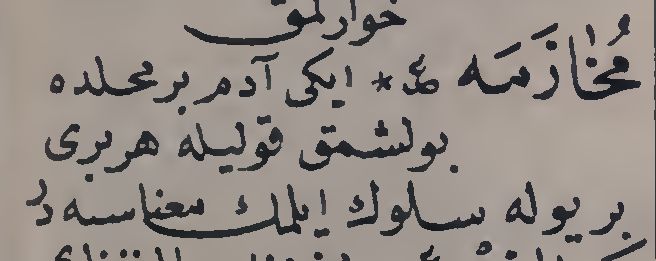 خوارلمق
مُخَازَمَه ع * ایکی آدم بر محلده
بولشمق قولیله هر بری
بر یوله سلوك ایلمك معناسنه در